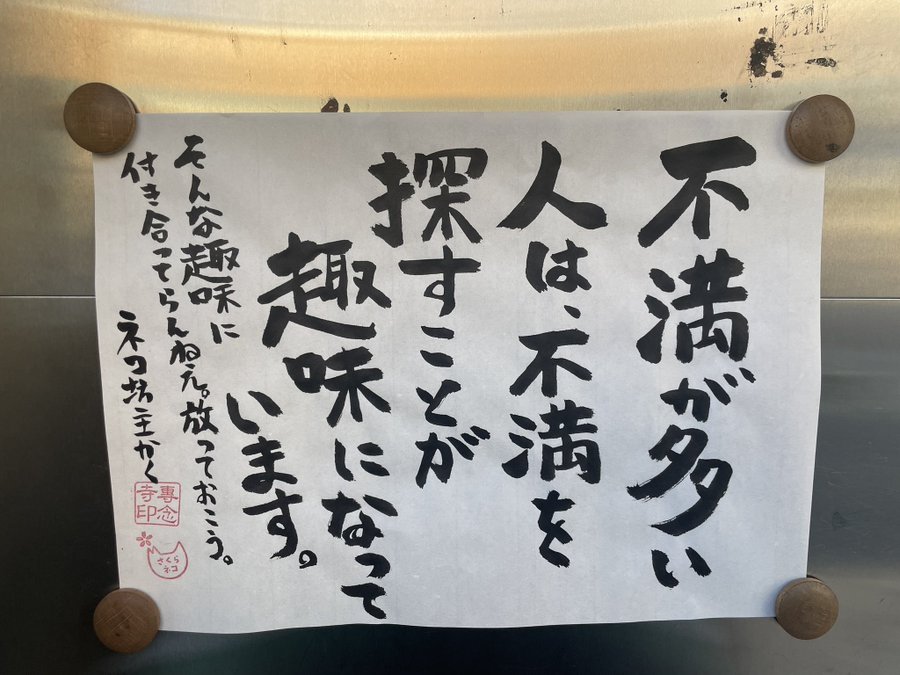 不満が多い
人は、不満を
探すことが
趣味になって
います。
そんな趣味に
付き合ってらんねえ。放っておこう。
ネコ坊主かく
專念
寺印
さくら
ネコ